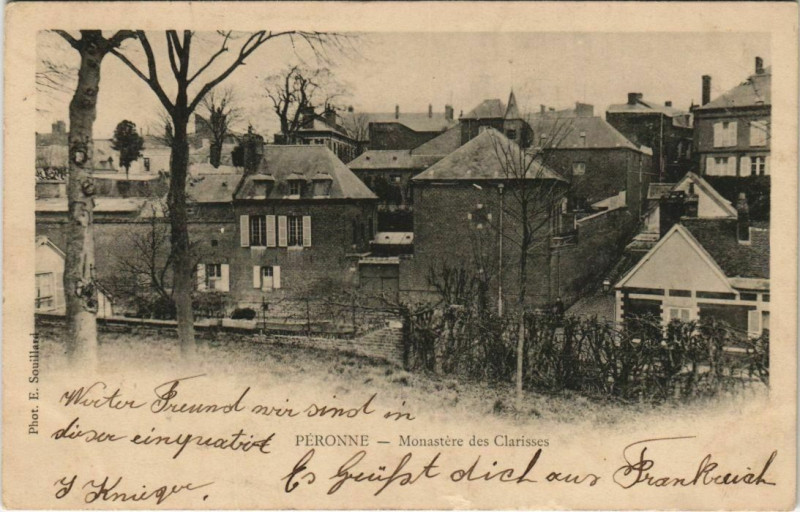 Phot. E. Souillard
Werter Freund wir sind in
dieser einquratirt
PÉRONNE — Monastère des Clarisses
J Knieger.
Es Grüßt dich aus Frankreich